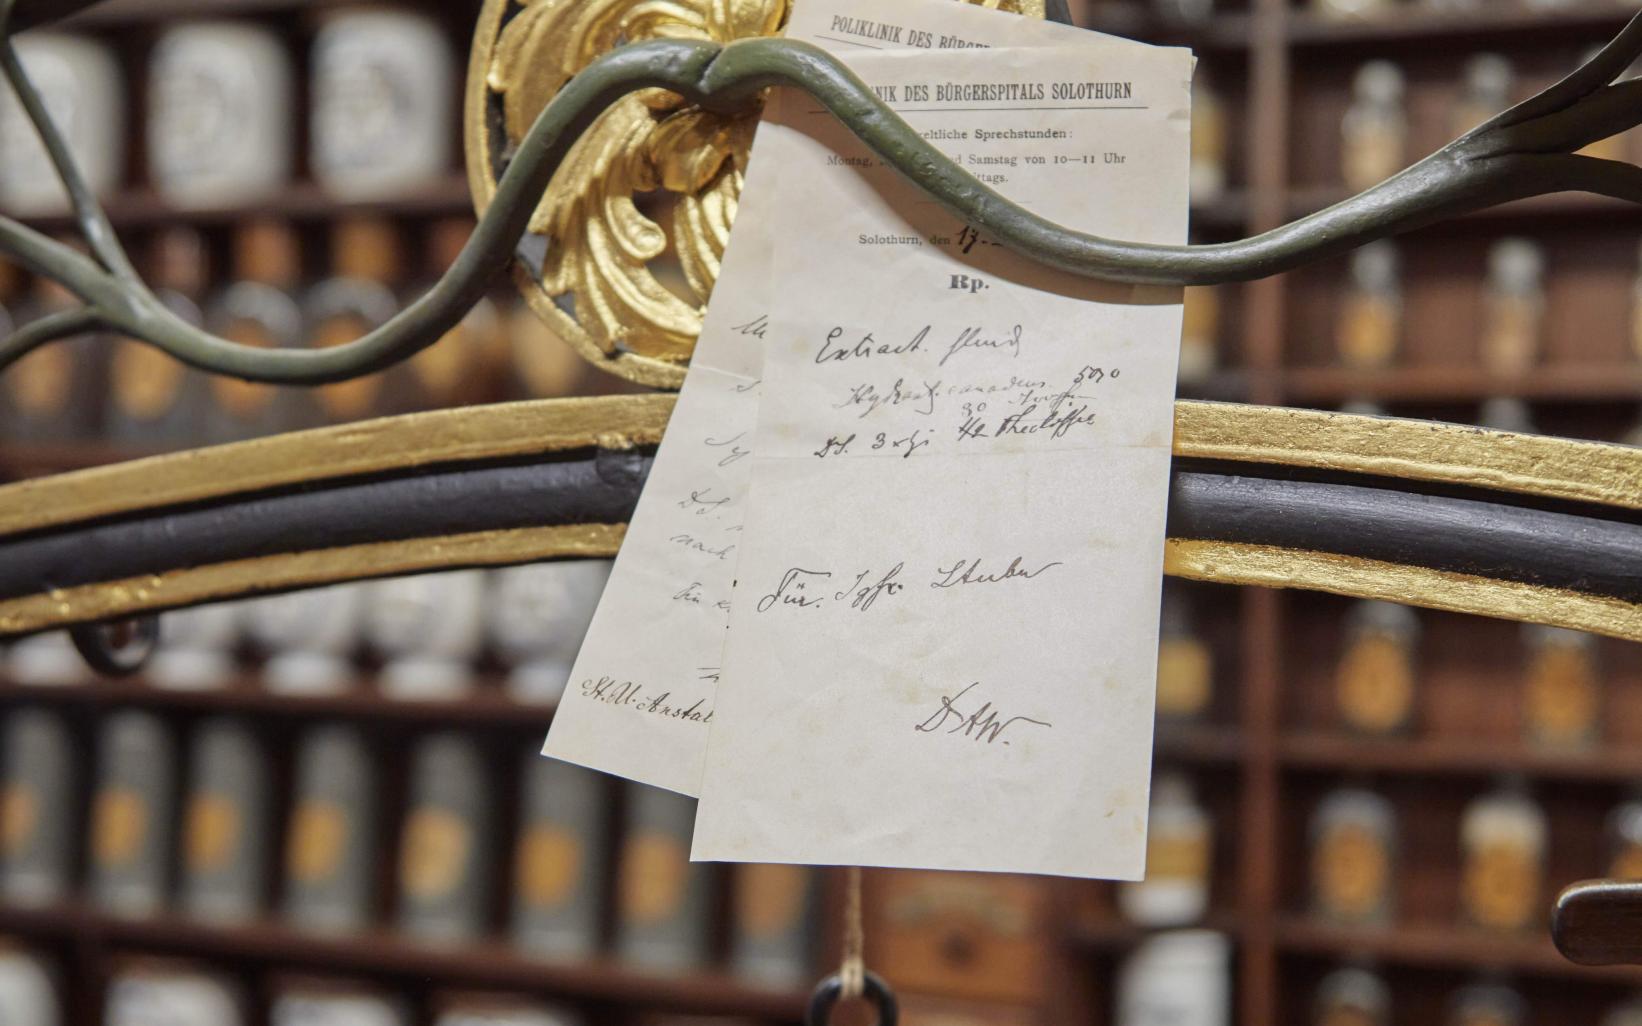 POLIKLINIK DES BÜRGER
NIK DES BÜRGERSPITALS SOLOTHURN
eltliche Sprechstunden:
Montag, d Samstag von 10—11 Uhr
ittags.
Solothurn, den 17.
Rp.
Extract. fluid
Hydrast. canadens. 50,0
30 Tropfen
DS. 3 x tgl 1/2 Theelöffel
Für. Jgfr. Stuber
DS.
nach
St. U. Anstal